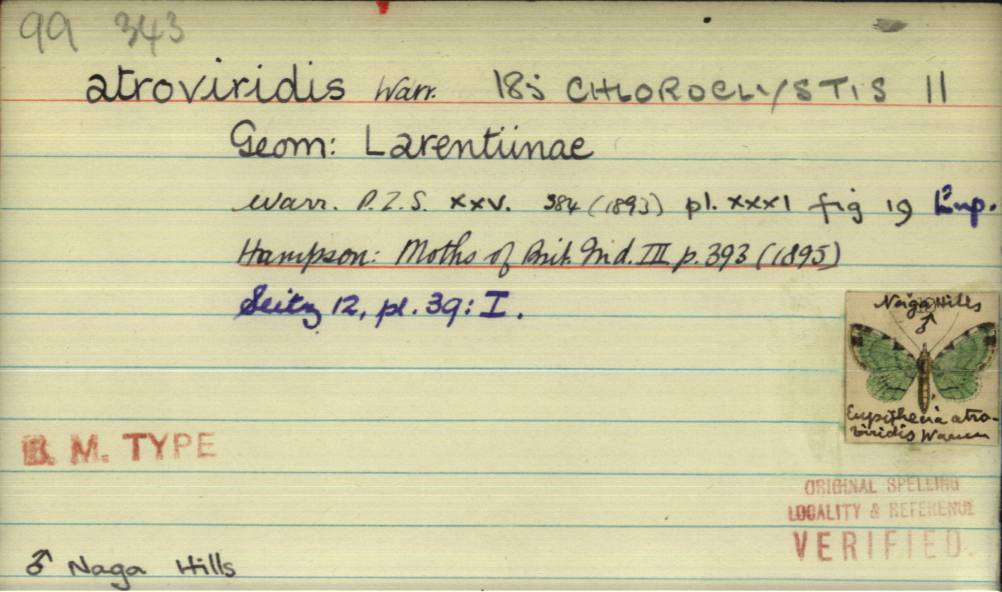 99 343
atroviridis Warr. 185 CHLOROCLYSTIS 11
Geom: Larentiinae
Warr. P.Z.S. XXV. 384 (1893) pl. XXXI fig 19 Eup.
Hampson: Moths of Brit. Ind. III p. 393 (1895)
Seitz 12, pl. 39: I.
Naga Hills
♂
Eupithecia atro-
viridis Warren
B. M. TYPE
ORIGINAL SPELLING
LOCALITY & REFERENCE
VERIFIED.
♂ Naga Hills